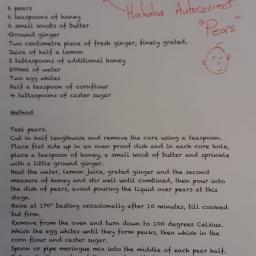 6 pears
6 teaspoons of honey
6 small knobs of butter
Ground ginger
Two centimetre piece of fresh ginger, finely grated,
Juice of half a lemon
2 tablespoons of additional honey
200ml of water
Two egg whites
Half a teaspoon of cornflour
4 tablespoons of caster sugar
Hahaha Autocorrect.
"Pears"
Method
Peel pears.
Cut in half lengthwise and remove the core using a teaspoon.
Place flat side up in an oven proof dish and in each core hole,
place a teaspoon of honey, a small knob of butter and sprinkle
with a little ground ginger.
Heat the water, lemon juice, grated ginger and the second
measure of honey and stir well until combined, then pour into
the dish of pears, avoid pouring the liquid over pears at this
stage.
Bake at 170° basting occasionally after 10 minutes, till cooked
but firm.
Remove from the oven and turn down to 100 degrees Celsius.
Whisk the egg whites until they form peaks, then whisk in the
corn flour and caster sugar.
Spoon or pipe meringue mix into the middle of each pear half.